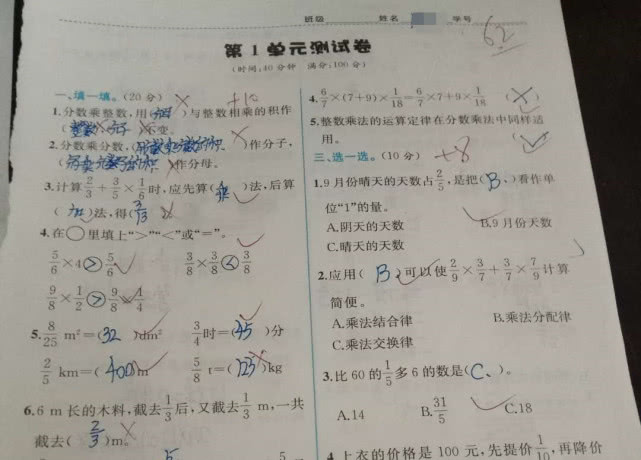 班级 姓名 学号
62
第1单元测试卷
(时间:40分钟 满分:100分)
一、填一填。(20分) +10
1.分数乘整数,用( )与整数相乘的积作
( )不变。
2.分数乘分数,( )作分子,
( )作分母。
3.计算2/3+3/5×1/6时,应先算(乘)法,后算
(加)法,得( )
4.在○里填上“>”“<”或“=”。
5/6×4>5/6 3/8×3/8<3/8
9/8×1/2>9/8×1/4
5.8/25 m²=(32)dm² 3/4时=(45)分
2/5 km=(400)m 5/8 t=(125)kg
6.6 m长的木料,截去1/3后,又截去1/3 m,一共
截去(2/3)m。
4.6/7×(7+9)×1/18=6/7×7+9×1/18 (×)
5.整数乘法的运算定律在分数乘法中同样适
用。 (√)
三、选一选。(10分) +8
1.9月份晴天的天数占2/5,是把(B、)看作单
位“1”的量。
A.阴天的天数 B.9月份天数
C.晴天的天数
2.应用(B、)可以使2/9×3/7+3/7×7/9计算
简便。
A.乘法结合律 B.乘法分配律
C.乘法交换律
3.比60的1/5多6的数是(C、)。
A.14 B.31/5 C.18
4.上衣的价格是100元,先提价1/10,再降价